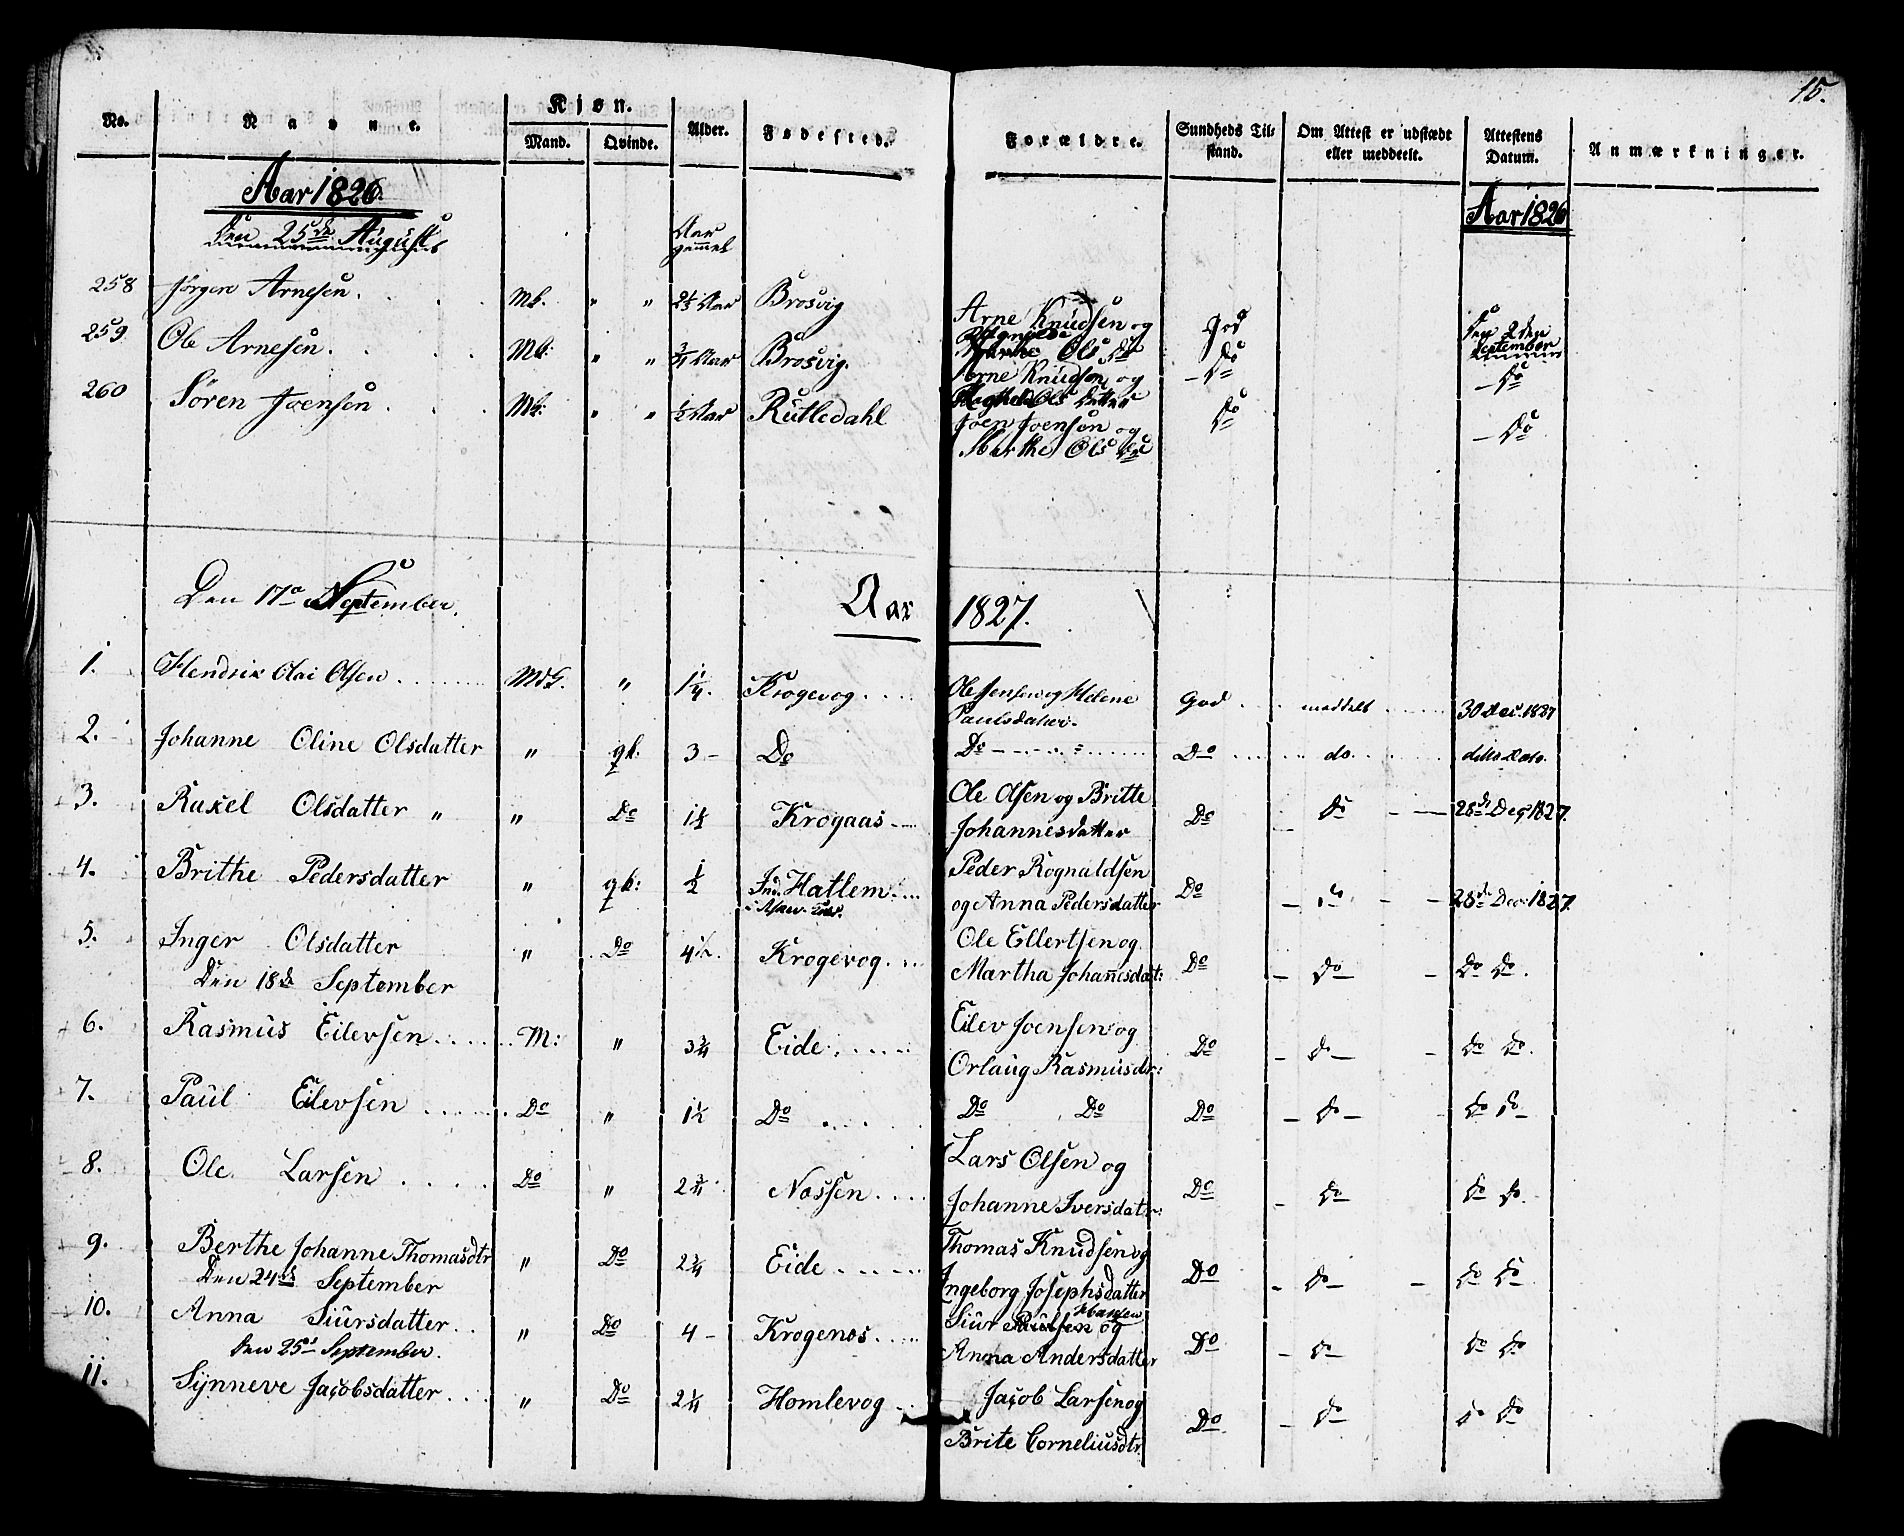 15.
No. Navne. Kjøn. Alder. Fødested. Forældre. Sundheds Til- Om Attest er udstædt Attestens Anmærkninger.
Mand. Qvinde. stand. eller meddeelt. Datum.
Aar 1826. Aar 1826
Den 25de August Aar
gammel
258 Jörgen Arnesen. Mk. " " 2½ Aar Brosvig Arne Knudsen og God Den 2den
Ols Do September
259 Ole Arnesen. Mk: " " ¾ Aar Brosvig. Arne Knudsen og Do Do
Ols Datter
260 Sören Joensen. Mk: " " ½ Aar Rutledahl Joen Joensen og Do Do
Marthe Ols Do
Den 17de September. Aar 1827.
1. Hendrik Olai Olsen Mdk. " 1¼. Krogevog Ole Jensen og Helene God meddelt 30 Dec. 1827
Paulsdatter.
2. Johanne Oline Olsdatter " qk: 3 - Do Do Do do. ditto Dato.
3. Raxel Olsdatter " " Do 1½ Krogaas Ole Olsen og Britte Do Do 28de Dec 1827.
Johannesdatter
4. Brithe Pedersdatter " qk: ½ Ind. Hatlem Peder Rognaldsen Do Do 28de Dec: 1827.
og Anna Pedersdatter
5. Inger Olsdatter " Do 4½. Krogevog Ole Ellertsen og Do Do Do Do.
Den 18de September Martha Johannesdat:
6. Rasmus Eilevsen M: " 3¾ Eide Eilev Joensen og Do Do Do Do.
Orlaug Rasmusdr:
7. Paul Eilevsen Do " 1½ Do Do Do Do Do Do Do
8. Ole Larsen Do " 2¾ Nossen Lars Olsen og Do Do Do Do.
Johanne Iversdatr:
9. Berthe Johanne Thomasdtr " Do 2¼ Eide Thomas Knudsen og Do Do Do Do
Den 24de September Ingeborg Josephsdatter
10. Anna Siursdatter " Do 4 - Krogenos Siur Paulsen og Do Do Do Do
Den 25de September. Anna Andersdatter
11. Synneve Jacobsdatter " Do 2¼ Homlevog Jacob Larsen og Do Do Do Do
Brite Corneliusdtr